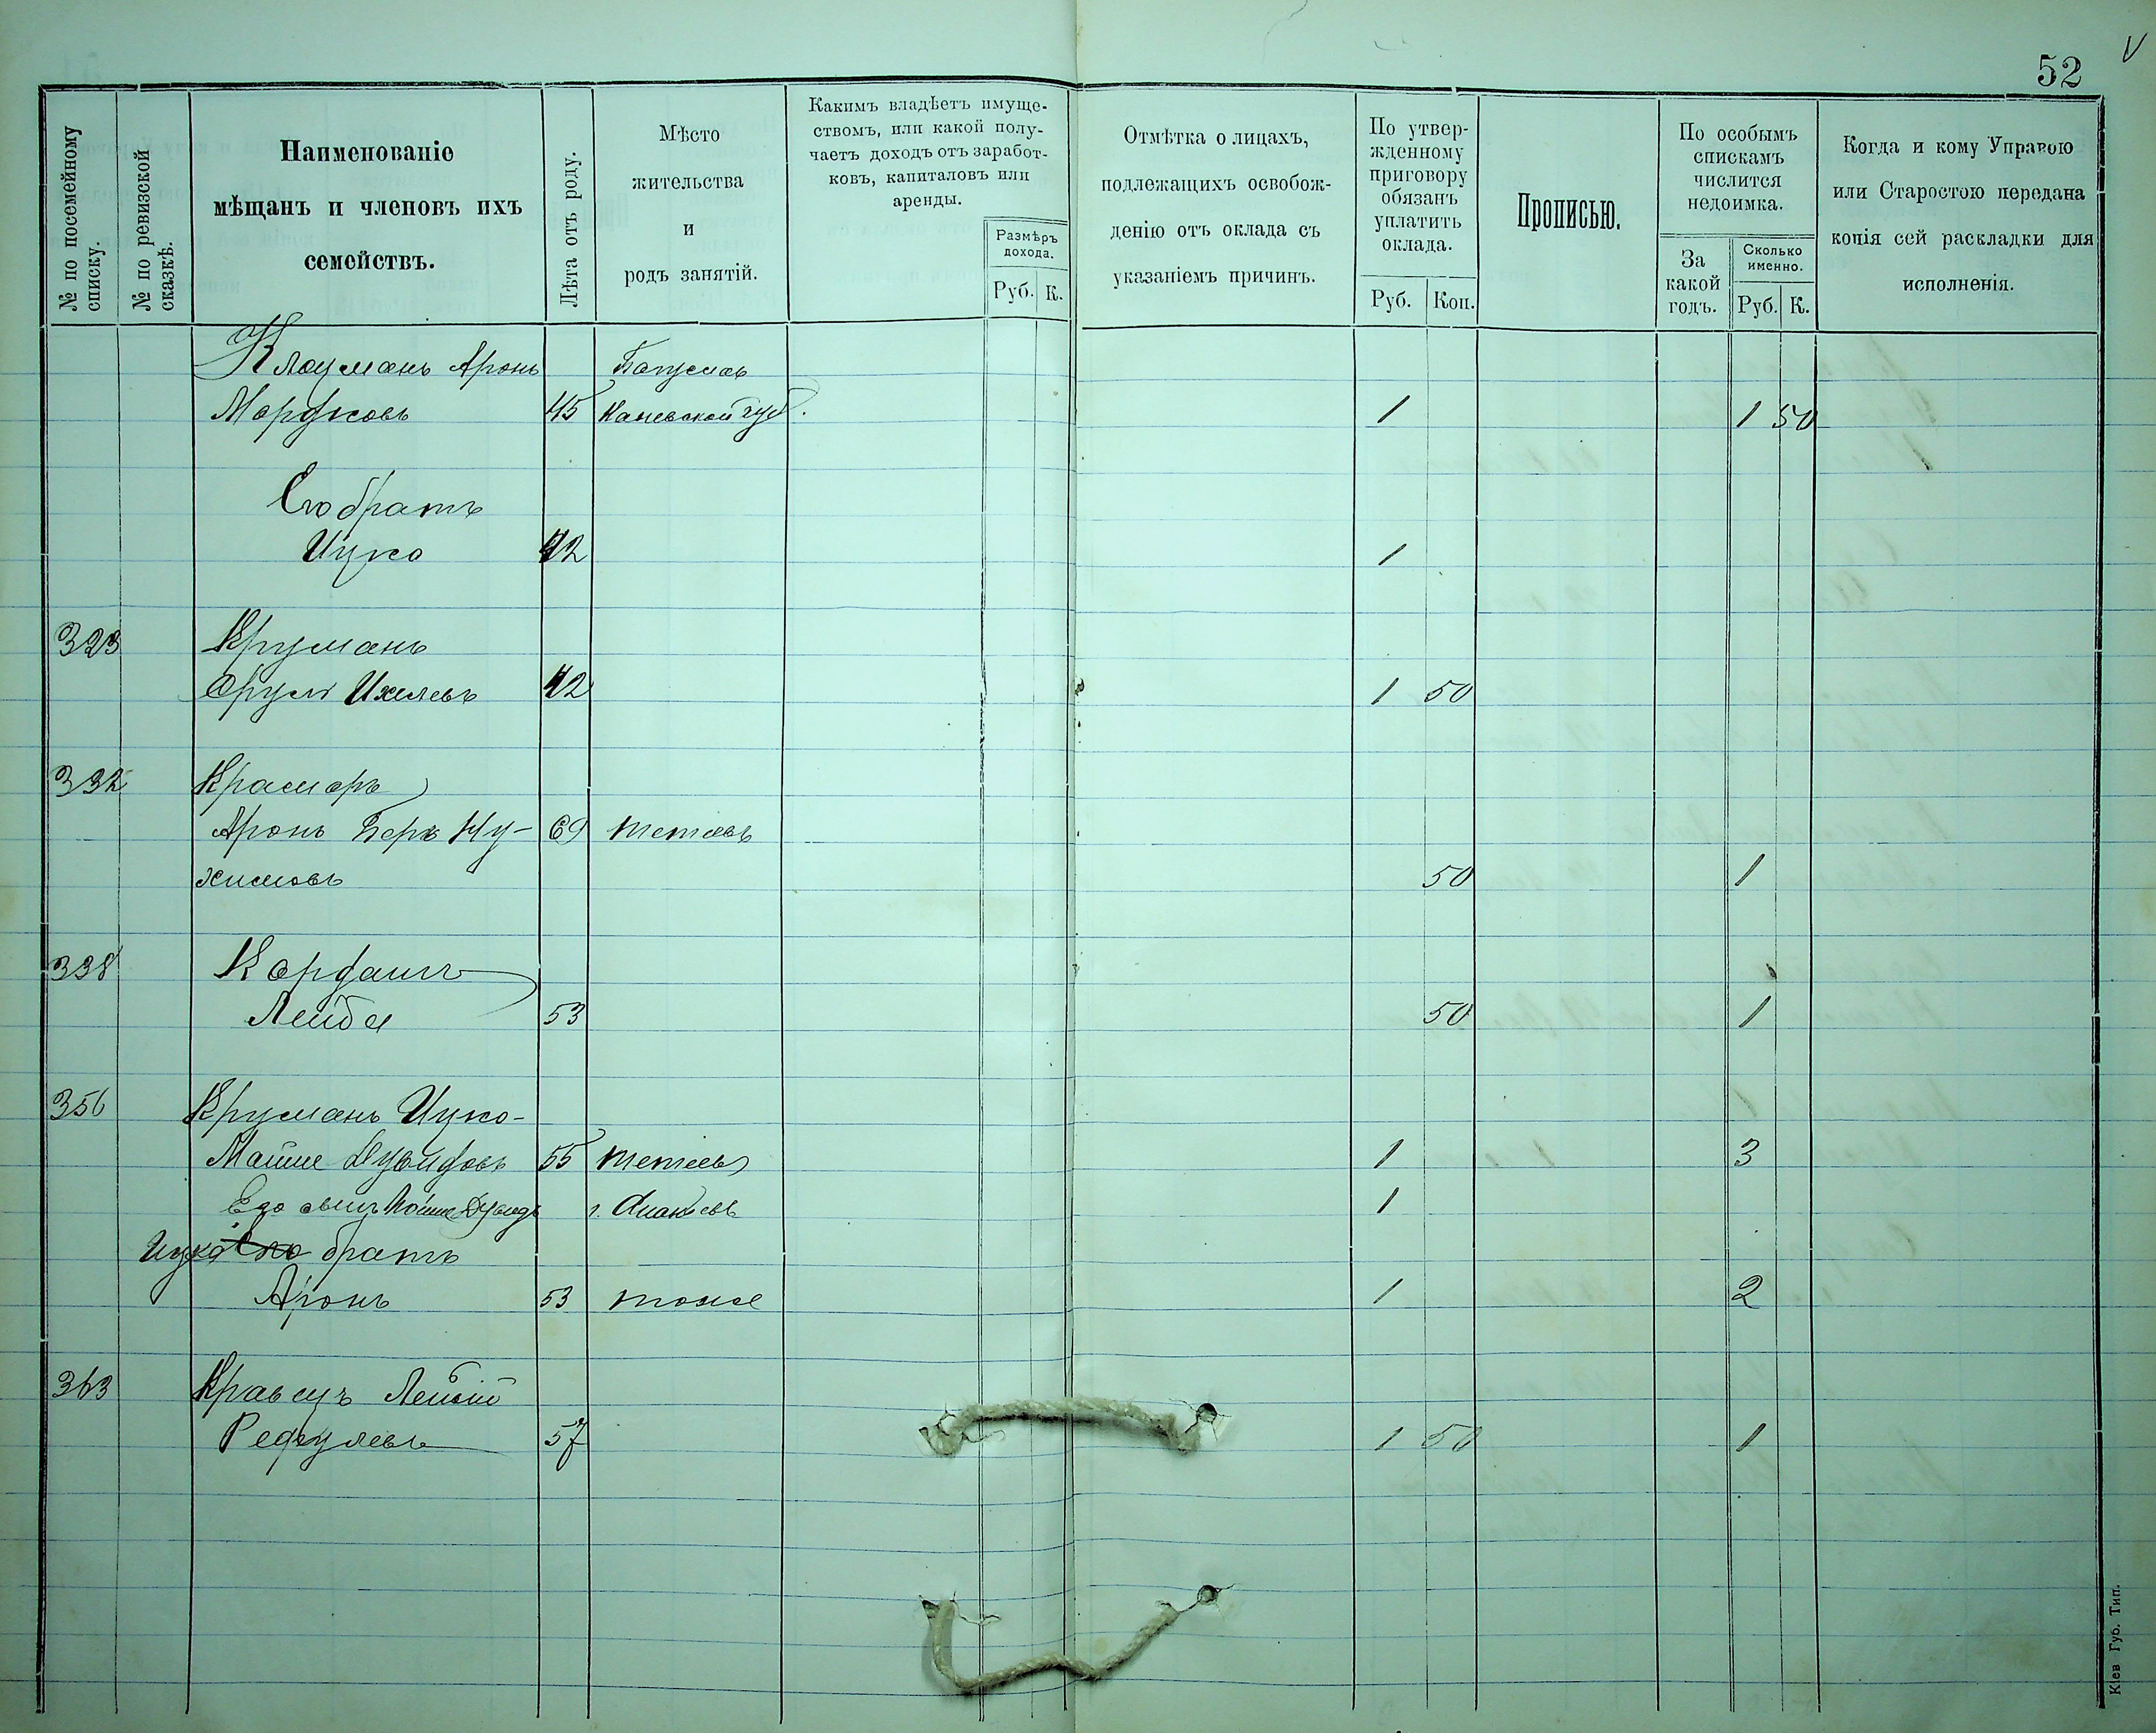 52
V
№ по посемейному списку.
№ по ревизской сказкѣ.
Наименованіе
мѣщанъ и членовъ ихъ
семействъ.
Лѣта отъ роду.
Мѣсто
жительства
и
родъ занятій.
Какимъ владѣетъ имуще-
ствомъ, или какой полу-
чаетъ доходъ отъ заработ-
ковъ, капиталовъ или
аренды.
Размѣръ
дохода.
Руб. К.
Отмѣтка о лицахъ,
подлежащихъ освобож-
денію отъ оклада съ
указаніемъ причинъ.
По утвер-
жденному
приговору
обязанъ
уплатить
оклада.
Руб. Коп.
Прописью.
По особымъ
спискамъ
числится
недоимка.
За
какой
годъ.
Сколько
именно.
Руб. К.
Когда и кому Управою
или Старостою передана
копія сей раскладки для
исполненія.
Клоцманъ Аронъ
Мордковъ 45 1 1 50
Его братъ
Ицко 42 1
323 Круманъ
Сруль Ихелевъ 42 1 50
332 Крамаръ
Аронъ Берк Ну- 69 Тетіевъ
химовъ 50 1
338
Лейба 53 50 1
356 Круманъ Ицко-
Мойше Дувидовъ 55 Тетіевъ 1 3
Его сынъ Мойше Дувидъ г. Ананіевъ 1
Ицко Его братъ
Аронъ 53 тоже 1 2
363 Кравецъ Лейбій
57 1 50 1
Кіев Губ. Тип.